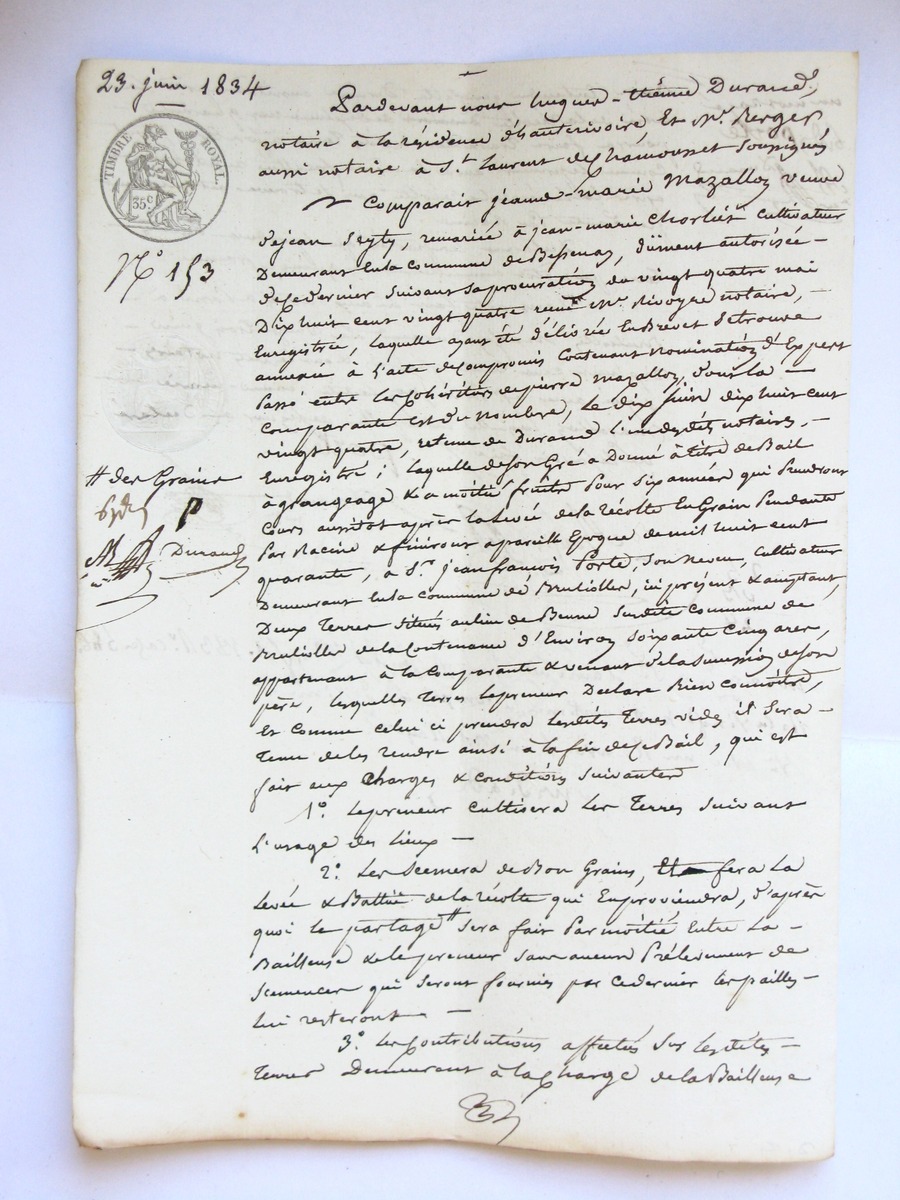 23. juin 1834
TIMBRE ROYAL.
35 c
N° 153
Pardevant nous hugues-thiénne Durand,
notaire à la résidence d'hauterivoire, Et Mr. Berger
aussi notaire à St. Laurent de Chamousset soussignés
Comparait jeanne-marie Mazallon veuve
de jean Seyty, remariée à jean-marie Charliet cultivateur
Demeurant En la commune de Bessenay, dûment autorisée
de ce dernier suivant sa procuration du vingt quatre mai
Dix huit cent vingt quatre reçue Mr. Rivoyre notaire,
Enregistrée, laquelle ayant été délivrée En Brevet se trouve
annexée à l'acte de compromis Contenant nomination d'Expert
Passé entre les cohéritiers de pierre Mazallon, dont la
Comparante Est du nombre, le dix juin dix huit cent
vingt quatre, retenu de Durand l'un des dits notaires,
Enregistré ; laquelle de son Gré a Donné à titre de Bail
à grangeage & a moitié fruits Pour six années qui Prendront
Cours aussitot après la Levée de la récolte En Grain Pendante
Par Racine & finiront a pareille Epoque de mil huit cent
quarante, à Sr. jean françois Porte, son neveu, Cultivateur
Demeurant En la commune de Brulioller, ici présent & acceptant,
Deux Terres situés au lieu de Benne Sus dite commune de
Brulioller de la Contenance d'Environ soixante cinq ares,
appartenant à la Comparante & venant de la succession de son
père, lesquelles Terres le preneur Declare Bien connoitre,
Et Comme celui ci prendra lesdites Terres vides il sera
Tenu de les rendre ainsi à la fin de ce Bail, qui est
fait aux Charges & conditions suivantes
1°. le preneur Cultivera Les Terres suivant
L'usage des Lieux
2°. Les scemera de Bon Grains, fera La
Levée & Battue de la récolte qui En proviendra, d'après
quoi le partage # sera fait Par moitié Entre La
Bailleuse & le preneur sans aucun Prélevement de
scemences qui seront fournies par ce dernier les pailles
lui resteront
3°. Les Contributions affectées sur Les dites
Terres Demeurent à la Charge de la Bailleuse
# des Grains
P
Durand